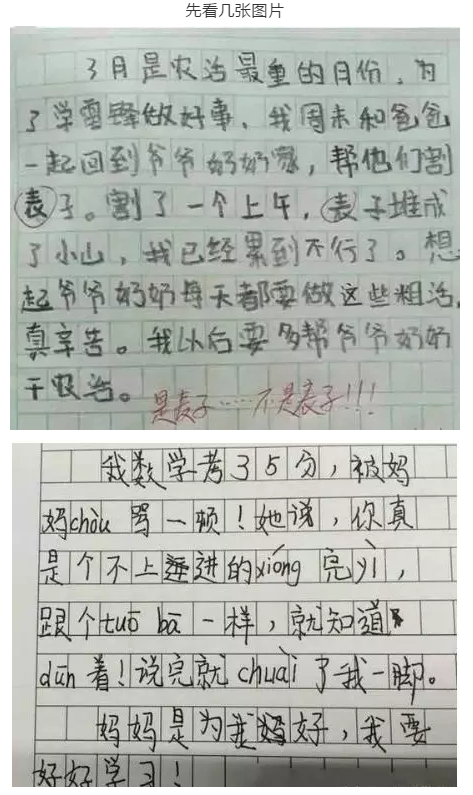 先看几张图片
3月是农活最重的月份，为
了学雷锋做好事，我周末和爸爸
一起回到爷爷奶奶家，帮他们割
表子。割了一个上午，表子堆成
了小山，我已经累到不行了。想
起爷爷奶奶每天都要做这些粗活，
真辛苦。我以后要多帮爷爷奶奶
干农活。
是麦子……不是表子!!!
我数学考35分，被妈
妈chòu 骂一顿！她说，你真
是个不上进的xióng 完yì，
跟个tuō bā 一样，就知道
dūn 着！说完就chuài了我一脚。
妈妈是为我好，我要
好好学习！